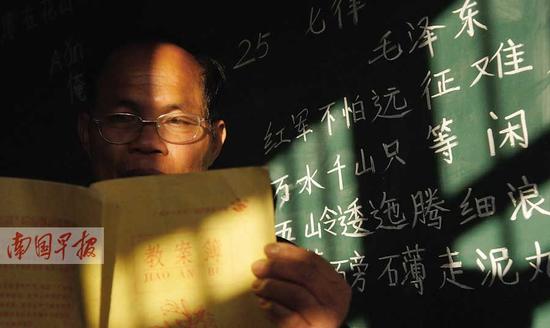 25 七律
毛泽东
红军不怕远征难
万水千山只等闲
五岭逶迤腾细浪
磅礴走泥丸
教案簿
JIAO AN BU
南国早报